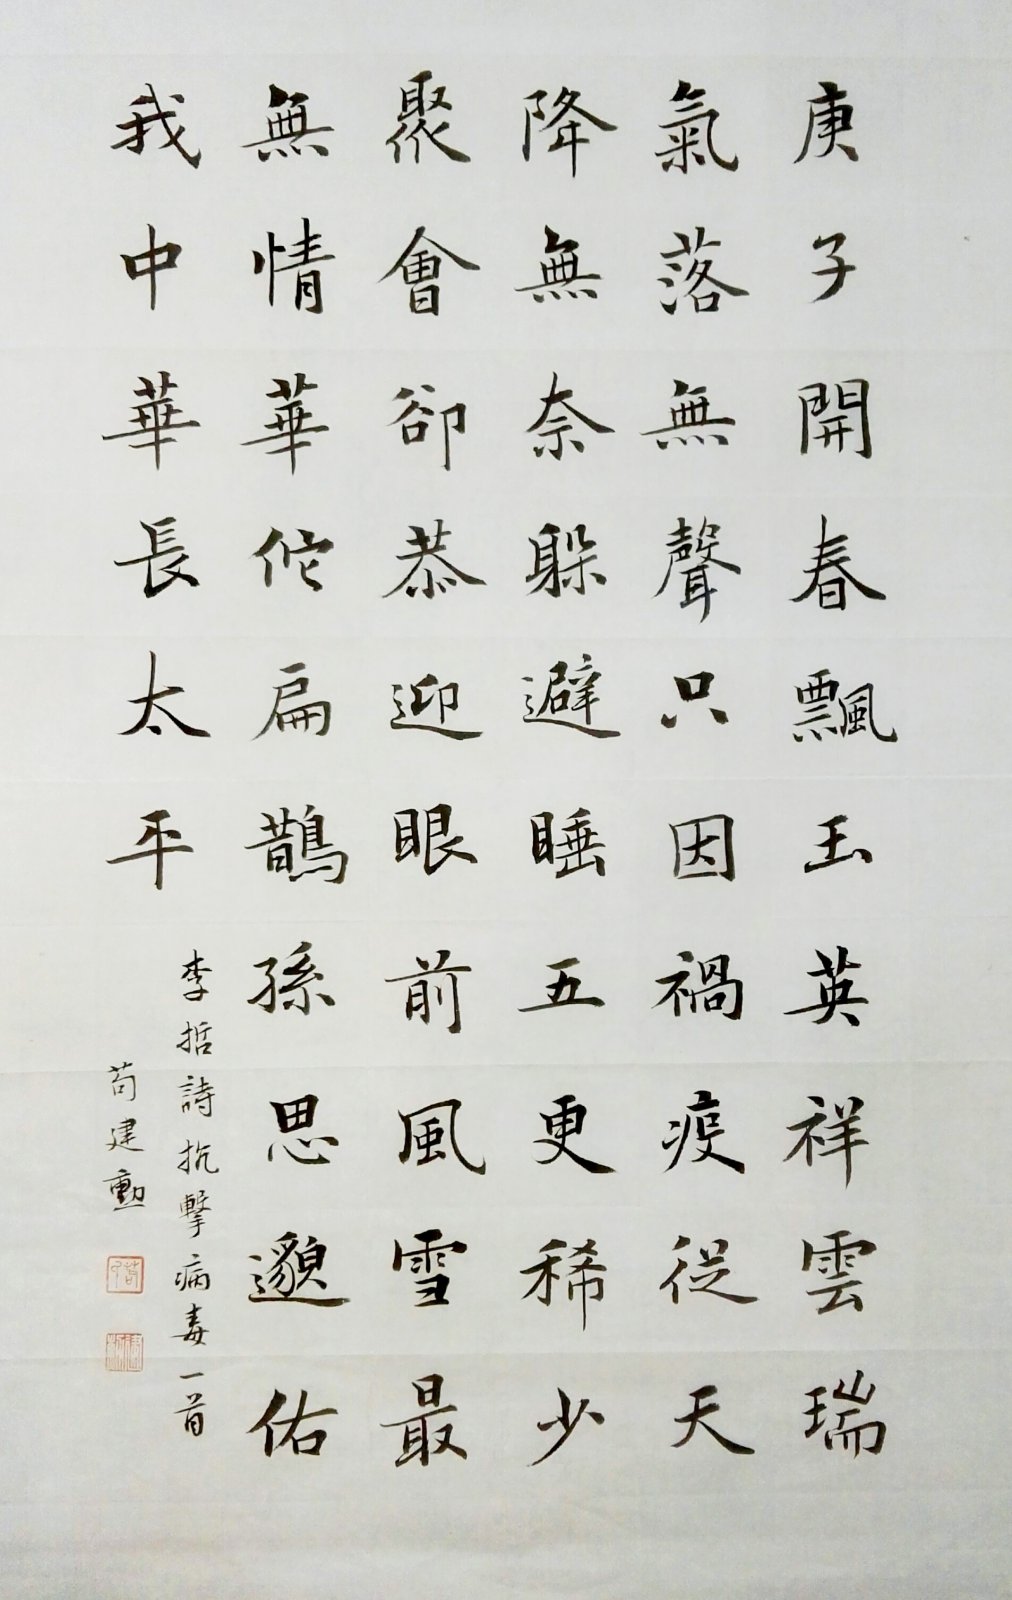 庚子開春飄玉英祥雲瑞
氣落無聲只因禍疫從天
降無奈躲避睡五更稀少
聚會卻恭迎眼前風雪最
無情華佗扁鵲孫思邈佑
我中華長太平
李哲詩抗擊病毒一首
苟建勳